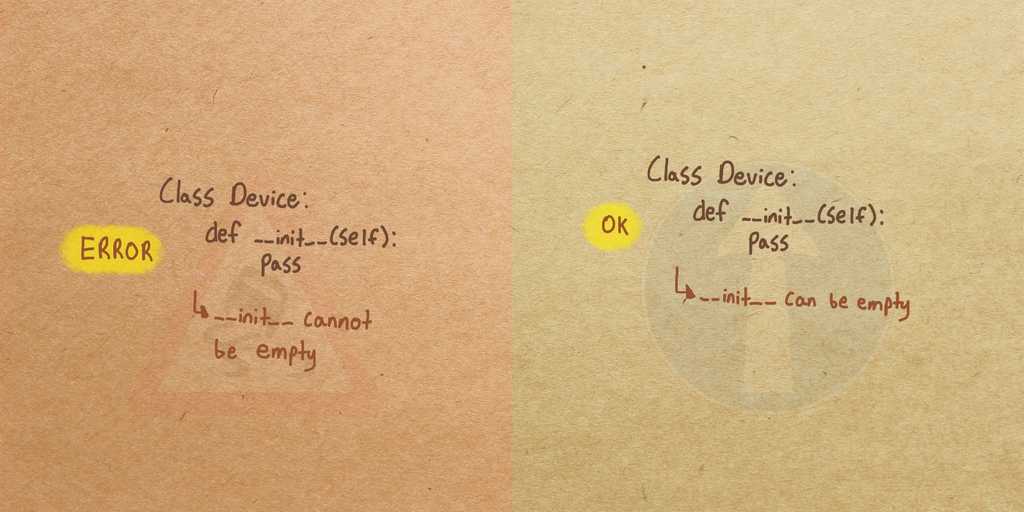 Class Device:
def __init__(self):
pass
ERROR
↳__init__ cannot
be empty
Class Device:
def __init__(self):
pass
OK
↳__init__ can be empty